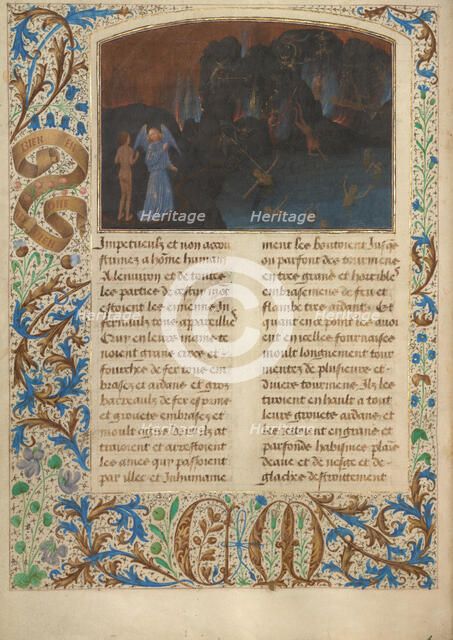 BIEN EN
Impetueulx et non accou
stumez a home humain
A lenuiron et de toutes
les parties de cestuy
estoient les ennemis In
fernaulx tous appareillies
Quy en leurs mains te
noient grans crocs et
fourches de fer tous em
brases et ardans et gros
barreaulx de fer
et grouetz embrases et
moult agus desquelz at
trayoient et arrestoient
les ames quy passoient
par illec et Inhumaine
ment les boutoient Jusqes
ou parfont des tourmens
entre grans et horribles
embrasemens de feu et
flambe tres ardant. Et
quant en ce point les auoi
ent en icelles fournaises
moult longuement tour
mentez de plusieurs et
diuers tourmens Ilz les
tiroient en hault a tout
leurs grouetz ardans et
les iettoient en grans et
parfons habismes plains
deaue et de neige et de
glaches
C M
Heritage Heritage
C
Heritage Heritage